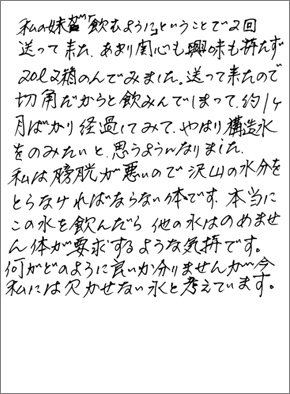 私の妹が「飲むように」ということで2回
送って来た、あまり関心も興味も持たず
20ℓ2箱のんでみました。送って来たので
切角だからと飲みんでしまって、約1ヶ
月ばかり経過してみて、やはり構造水
をのみたいと、思うようになりました。
私は膀胱が悪いので沢山の水分を
とらなければならない体です、本当に
この水を飲んだら他の水はのめませ
ん体が要求するような気持です。
何がどのように良いか分りませんが今
私には欠かせない水と考えています。